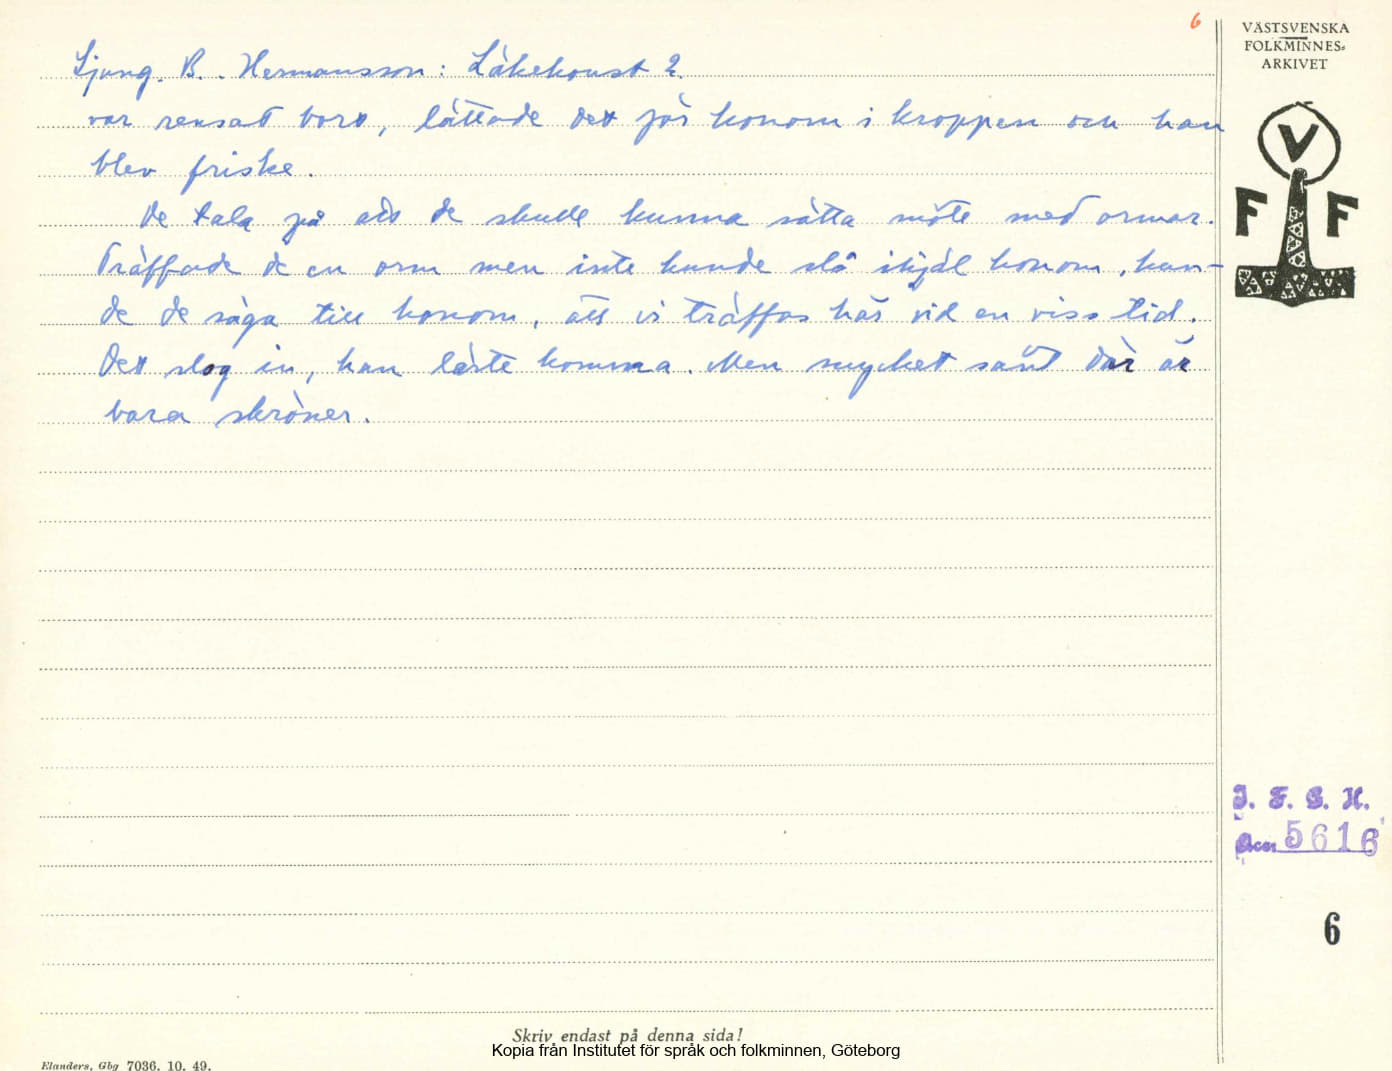 6
VÄSTSVENSKA
FOLKMINNES-
ARKIVET
Ljung. B. Hermansson: Läkekonst 2.
var rensat bort, lättade det för honom i kroppen och han
blev friske.
De tala på att de skulle kunna sätta möte med ormar.
Träffade de en orm men inte kunde slå ihjäl honom, kun-
de de säga till honom, att vi träffas här vid en viss tid.
Det slog in, han lärte komma. Men mycket sånt där är
bara skröner.
V
F F
I. F. G. H.
Acc. 5616
6
Skriv endast på denna sida!
Kopia från Institutet för språk och folkminnen, Göteborg
Elanders, Gbg 7036. 10. 49.